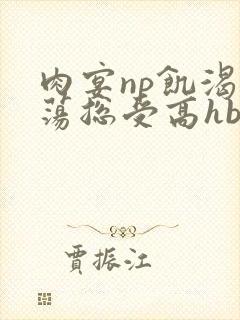 肉宴np飢渴
蕩総受高hb
賈振江